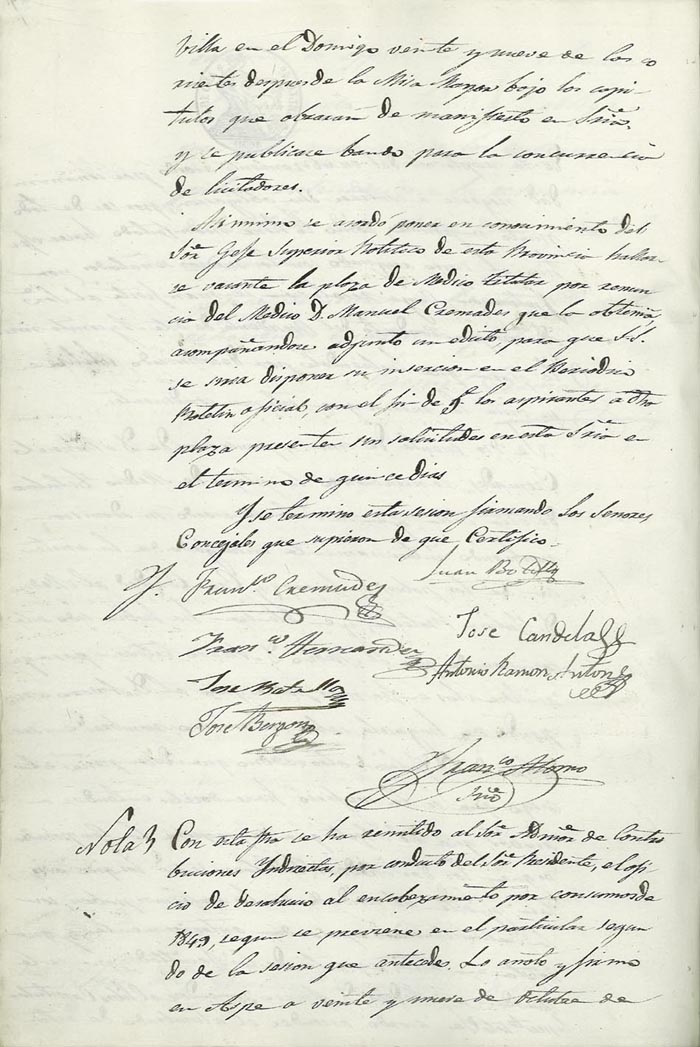 Villa en el Domingo veinte y nueve de los co
rrientes despues de la Misa Mayor bajo los capi-
tulos que obrarán de manifiesto en Sria.
y se publicase bando para la concurrencia
de licitadores.
Asimismo se acordó poner en conocimiento del
Sor. Gefe Superior Politico de esta Provincia hallar-
se vacante la plaza de Medico titular por renun
cia del Medico D. Manuel Cremades que la obtenia,
acompañandose adjunto un edicto, para que S.S.
se sirva disponer su insercion en el Periodico
Boletin oficial, con el fin de q. los aspirantes a dha
plaza presenten sus solicitudes en esta Sria en
el termino de quince dias
Y se termino esta sesion firmando los Señores
Concejales que supieron de que Certifico.
Juan Botella
Franco Cremades
Jose Candela
Franco. Hernandez
Antonio Ramon Anton
Jose Botella
Jose Berzon
Franco Alonso
Srio
Nota Con esta fha se ha remitido al Sor. Admor. de Contri
buciones Yndirectas, por conducto del Sor. Presidente, el ofi
cio de desahucio al encabezamiento por consumos de
1849, segun se previene en el particular segun
do de la sesion que antecede. Lo anoto y firmo
en Aspe a veinte y nueve de Octubre de